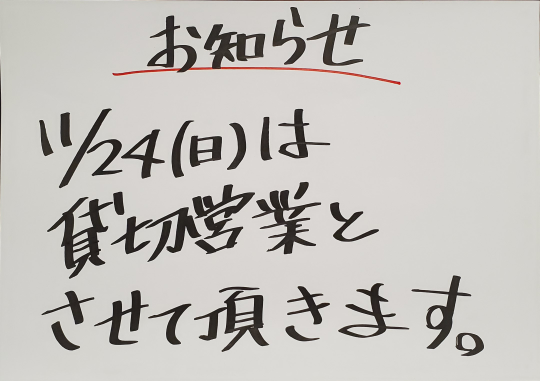 お知らせ
11/24(日)は
貸切営業と
させて頂きます。